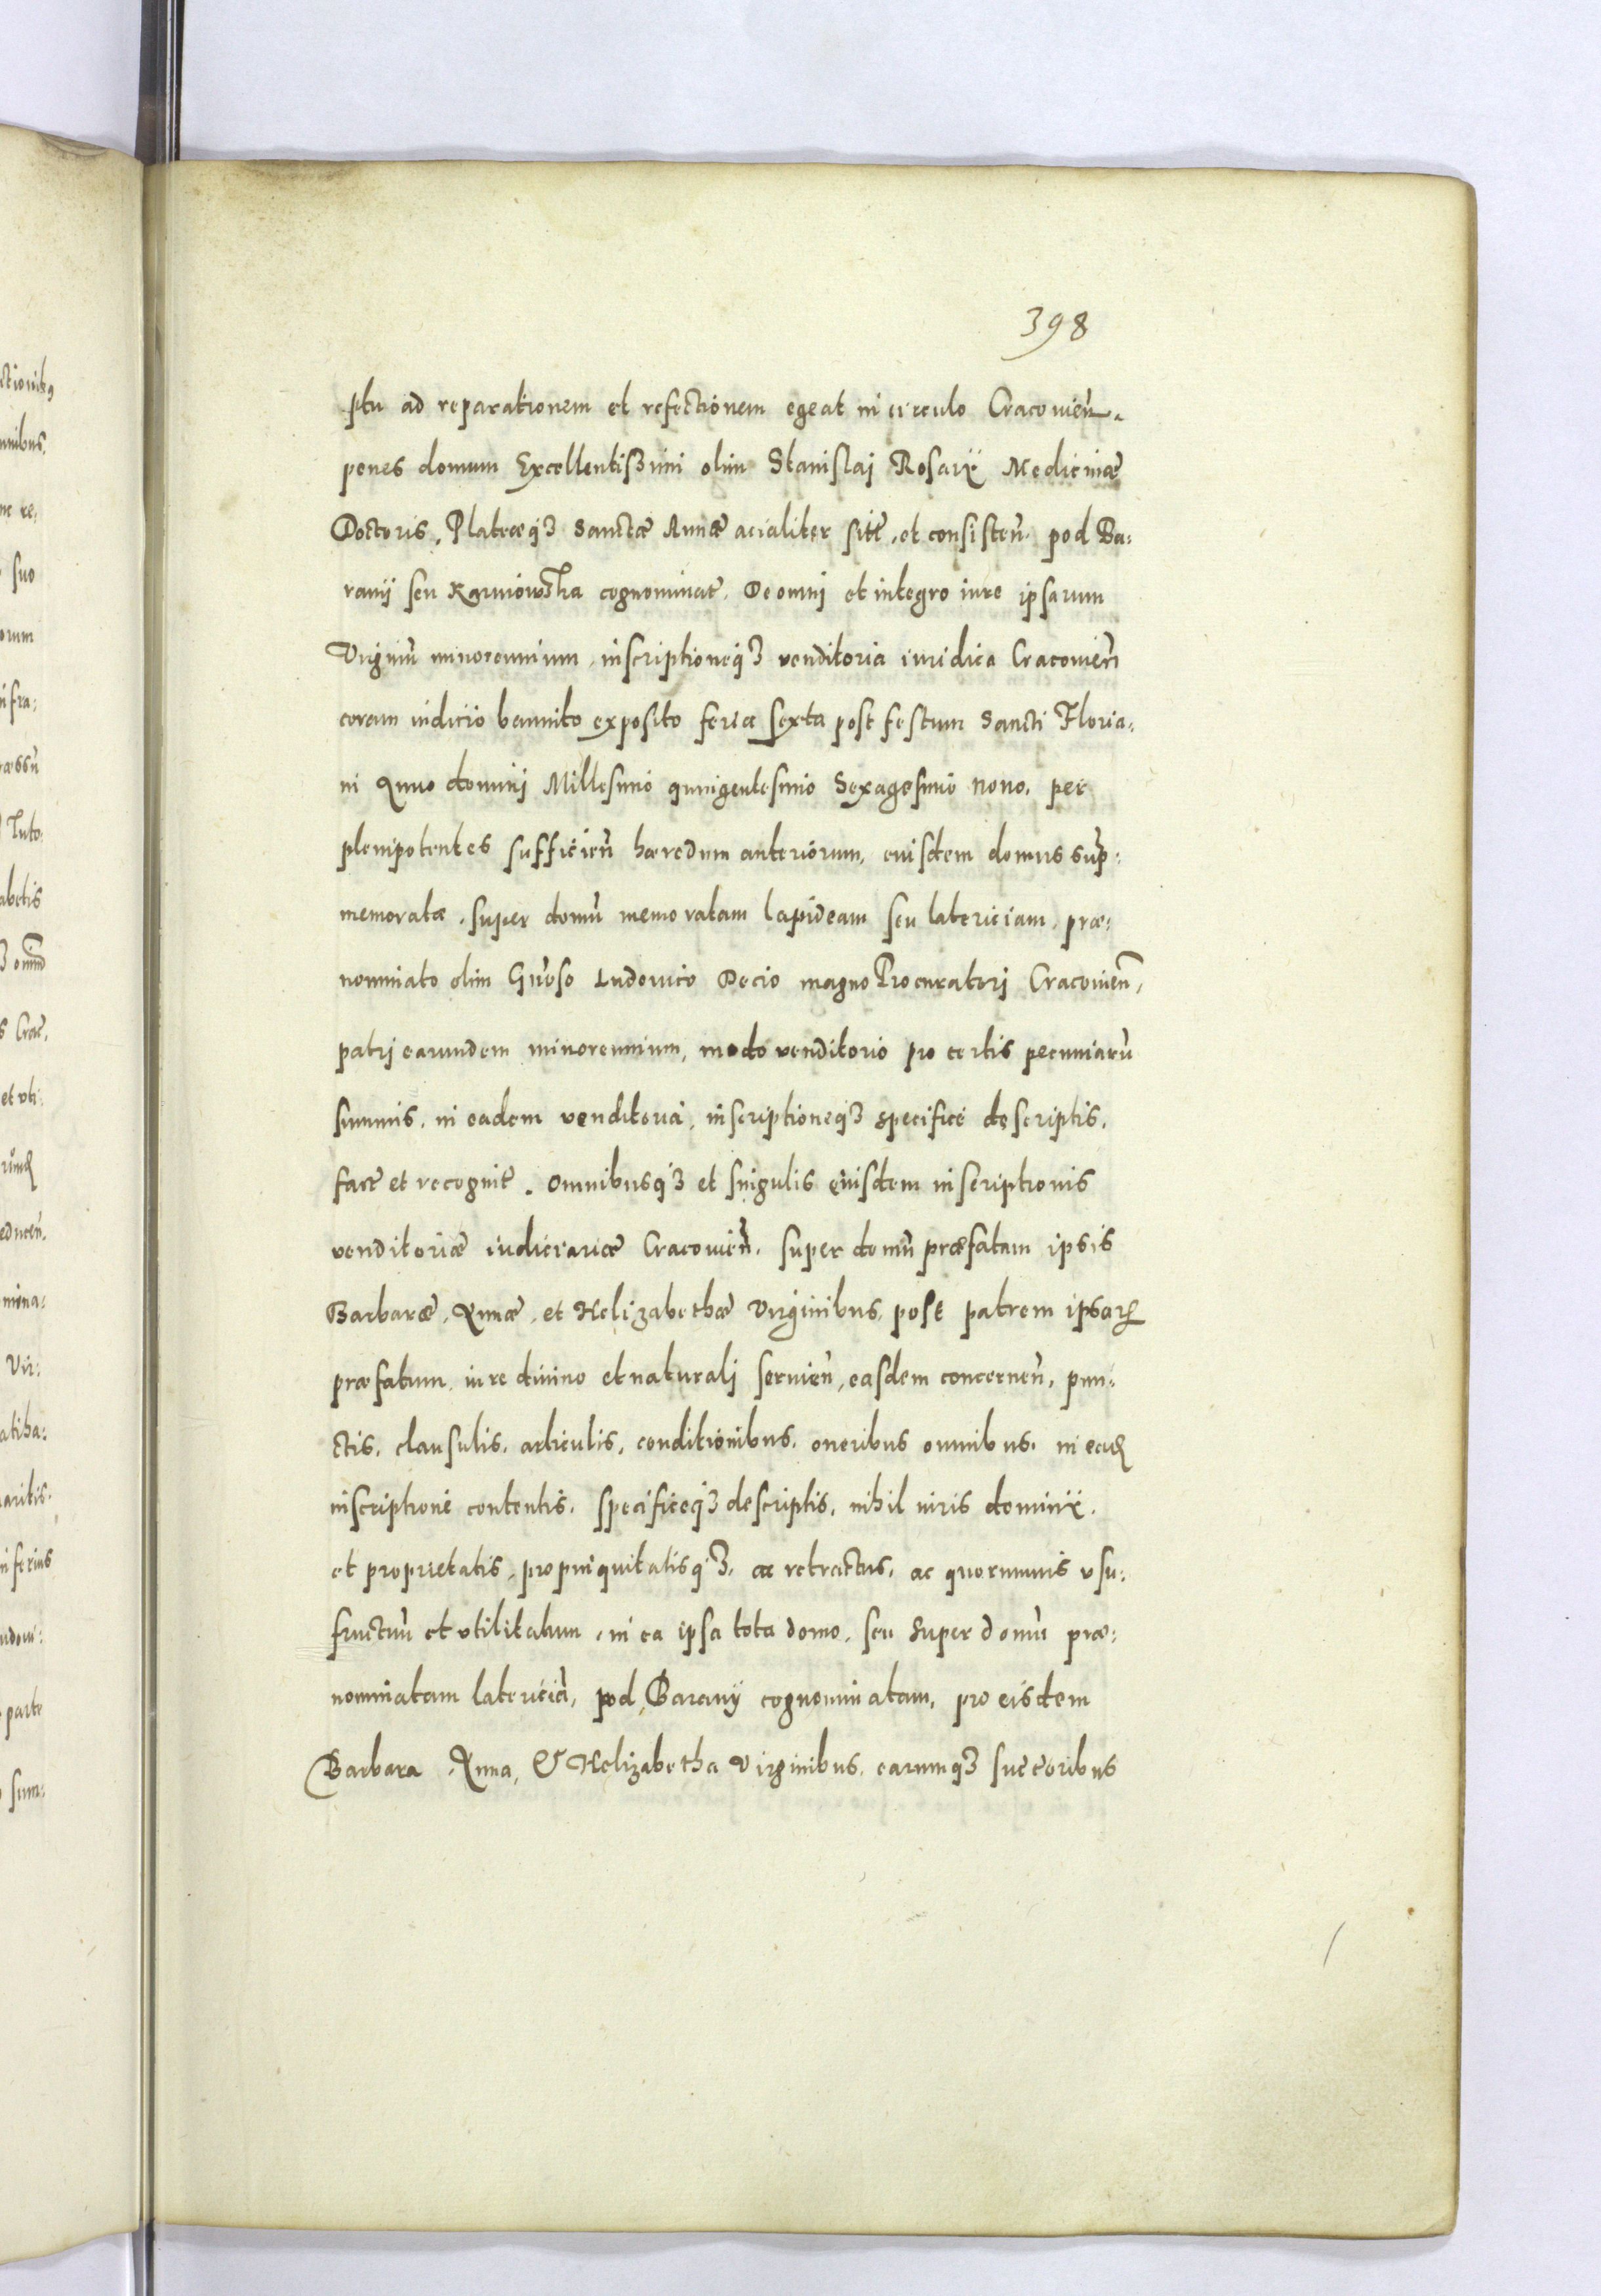 398
ptu ad reparationem et refectionem egeat in circulo Cracouien̄.
penes domum Excellentissimi olim Stanislaj Rosarÿ Medicinæ
Doctoris, Platæqȝ Sanctæ Annæ acialiter sitē, et consisten̄. pod Ba:
ranÿ seu cognominat̄. De omni et integro iure ipsarum
Virginū minorennium, inscriptioneqȝ venditoria iuridica Cracouien̄
coram iudicio bannito exposito feria sexta post festum Sancti Floria:
ni Anno dominj Millesimo quingentesimo Sexagesimo nono. per
plenipotentes sufficien̄ hæredum anteriorum, eiusdem domus sup̄:
memoratæ, super domū memoratam lapideam seu latericiam, præ:
nominato olim Gn̄oso Ludouico Decio magno Procuratorj Cracouien̄,
patrj earundem minorennium, modo venditorio pro certis pecuniarū
summis, in eadem venditoria, inscriptioneqȝ specifice descriptis,
fact̄ et recognit̄. Omnibusqȝ et singulis eiusdem inscriptionis
venditoriæ iudiciariæ Cracouien̄. super domū præfatam ipsis
Barbaræ, Annæ, et Helizabethæ Virginibus, post patrem ipsarꝫ
præfatum, iure diuino et naturalj seruien̄, easdem concernen̄, pun:
ctis, clausulis, articulis, conditionibus, oneribus omnibus, in ead
inscriptione contentis, specificeqȝ descriptis, nihil iuris dominÿ,
et proprietatis, propinquitatisqȝ, ac retractus, ac quorumuis vsu:
fructuū et vtilitatum, in ea ipsa tota domo, seu super domū præ:
nominatam latericiā, pod Baranÿ cognominatam, pro eisdem
Barbara, Anna, & Helizabetha Virginibus, earumqȝ succ̄oribus